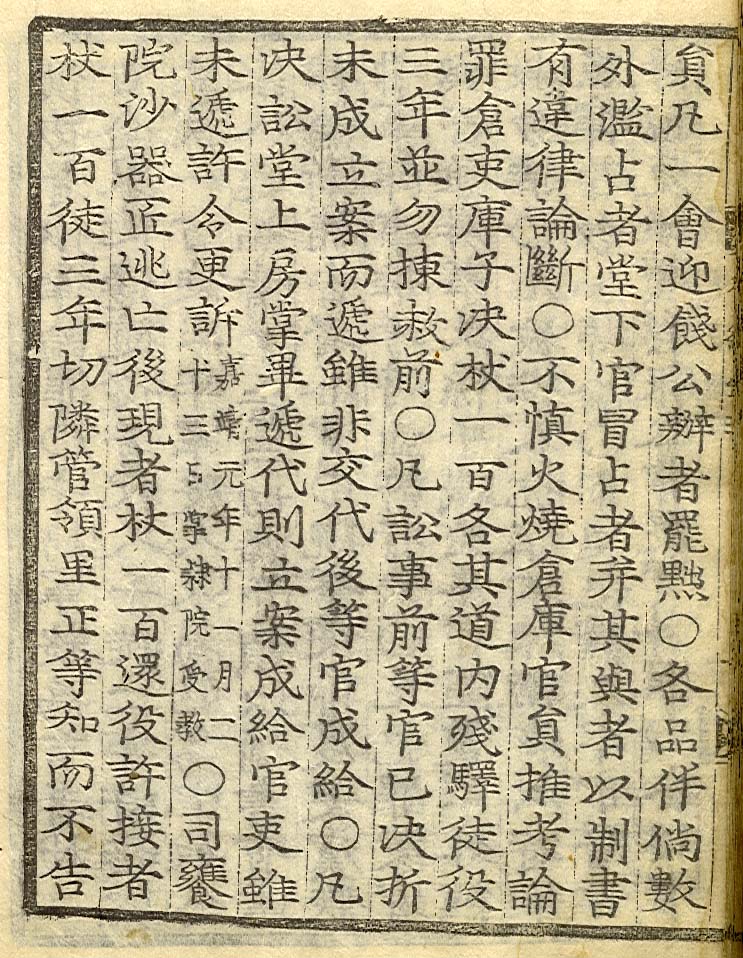 貟凡一會迎餞公辦者罷黜○各品伴倘數
外濫占者堂下官冒占者并其與者以制書
有違律論斷○不慎火燒倉庫官貟推考論
罪倉吏庫子决杖一百各其道內殘驛徒役
三年並勿揀赦前○凡訟事前等官已决折
未成立案而遞雖非交代後等官成給○凡
决訟堂上房掌畢遞代則立案成給官吏雖
未遞許令更訴嘉靖元年十一月二十三日掌隷院受教○司饔
院沙器匠逃亡後現者杖一百還役許接者
杖一百徒三年切隣管領里正等知而不告